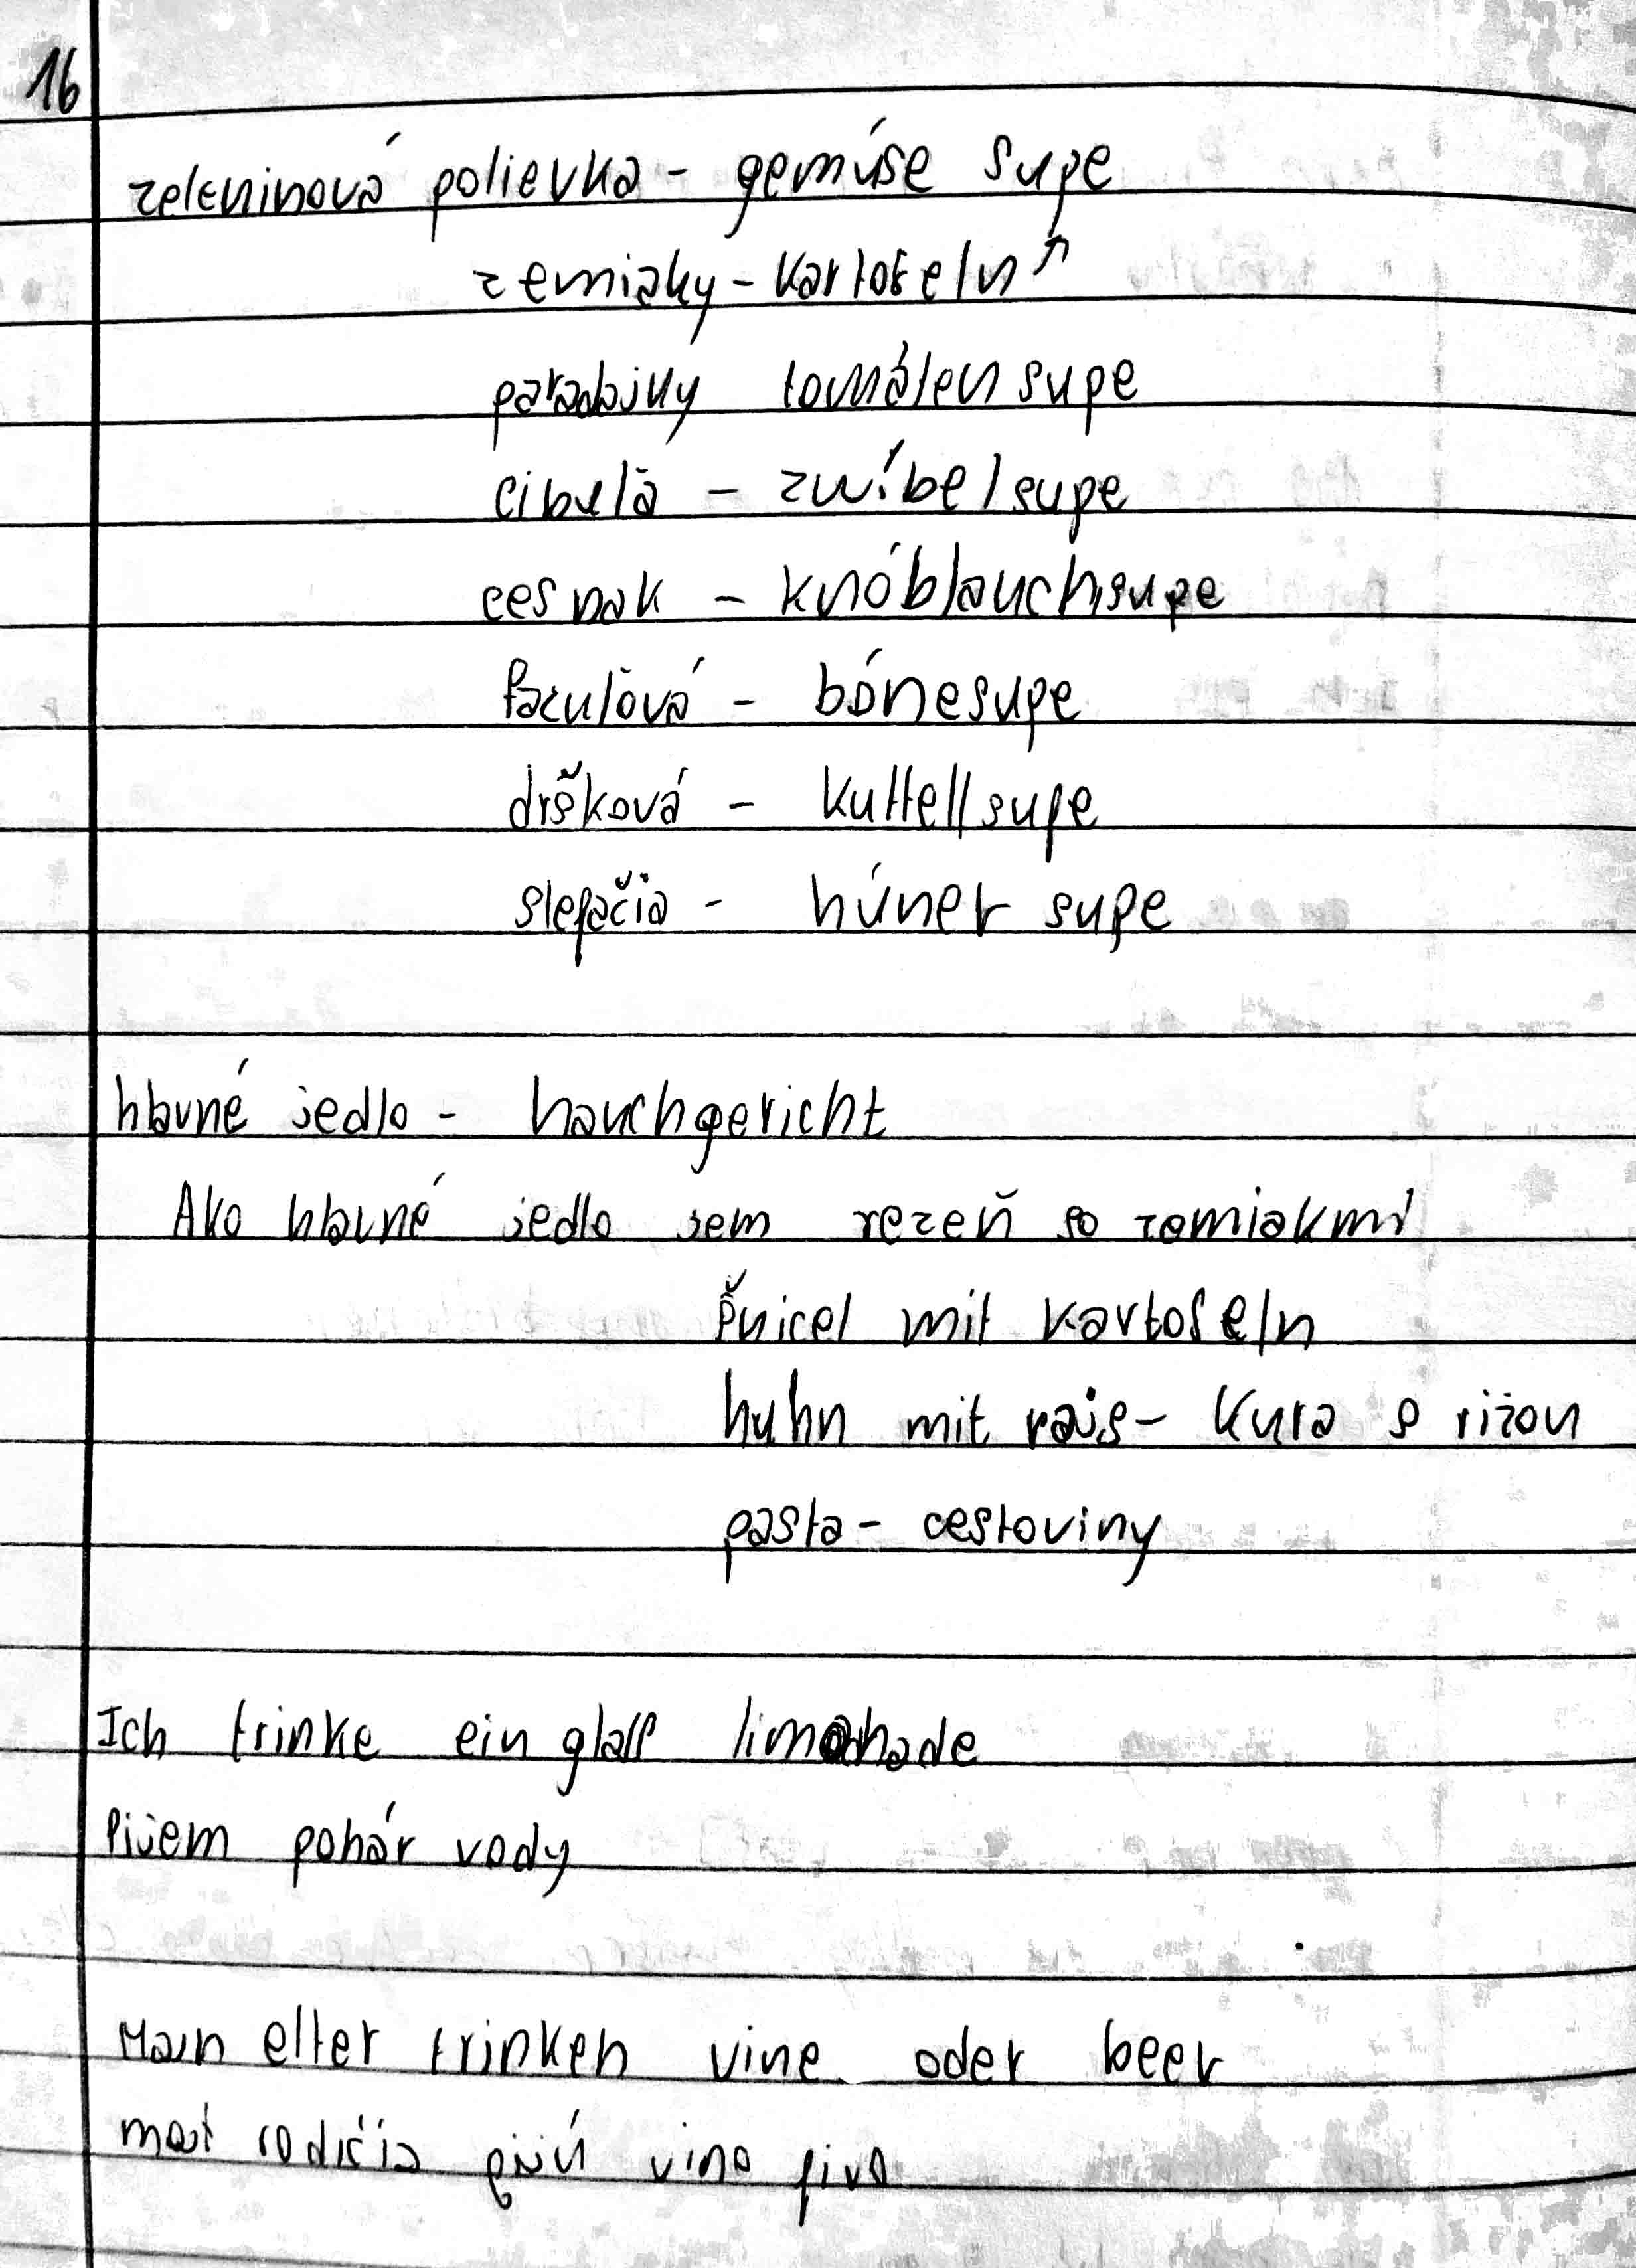 16
zeleninová polievka - gemúse supe
zemiaky - kartofeln ↗
paradajky tomáten supe
cibula - zwíbelsupe
cesnak - knóblauchsupe
fazulová - bónesupe
držková - kuttellsupe
slepačia - húner supe
hlavné jedlo - hauchgericht
Ako hlavné jedlo jem rezeň so zemiakmi
šnicel mit kartofeln
huhn mit rais - Kura s rižou
pasta - cestoviny
Ich trinke ein glass limonade
Pijem pohár vody
Main elter trinken vine oder beer
moji rodičia pijú vino pivo